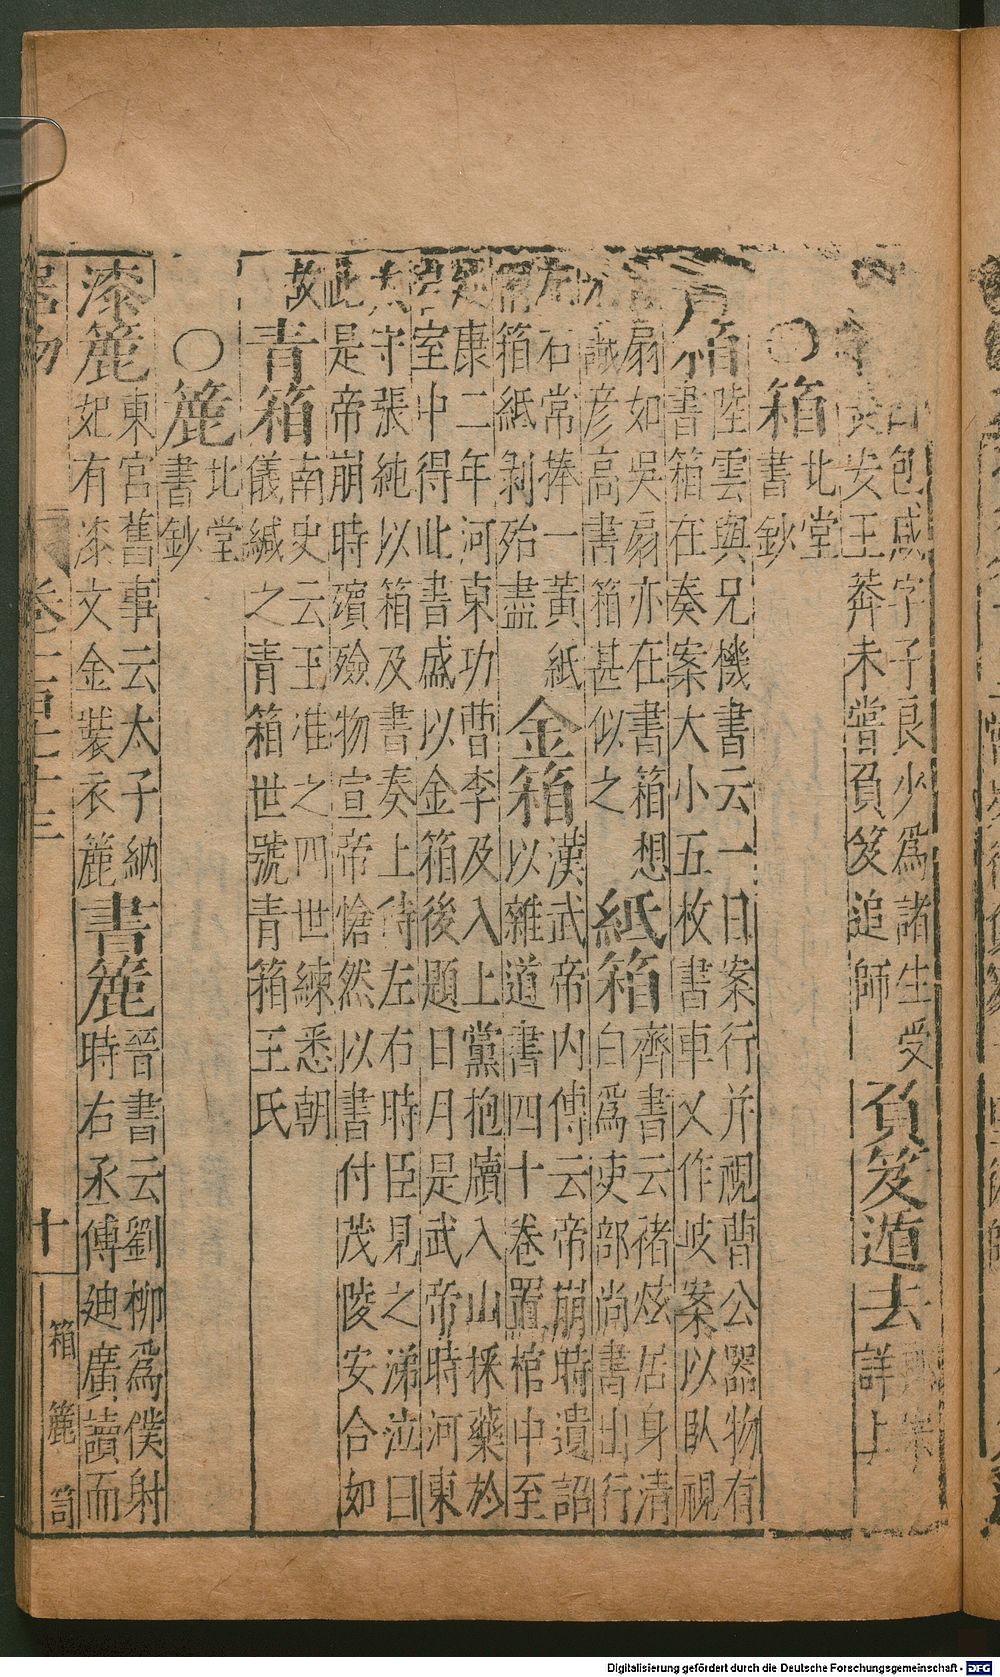 包咸字子良少為諸生受
長安王莽未嘗負笈追師
負笈遁去
詳上
○箱
北堂
書鈔
箱
陸雲與兄機書云一日案行并視曹公器物有
書箱在奏案大小五枚書車又作岐案以臥視
扇如吳扇亦在書箱想
識彥高書箱甚似之
紙箱
齊書云褚炫居身清
白爲吏部尚書出行
左右常捧一黃紙
箱紙剥殆盡
金箱
漢武帝內傳云帝崩時遺詔
以雜道書四十卷置棺中至
康二年河東功曹李及入上黨抱犢入山採藥於
室中得此書盛以金箱後題日月是武帝時河東
太守張純以箱及書奏上侍左右時臣見之涕泣曰
此是帝崩時殯殮物宣帝愴然以書付茂陵安合如
故
青箱
南史云王准之四世練悉朝
儀緘之青箱世號青箱王氏
○簏
北堂
書鈔
漆簏
東宮舊事云太子納
妃有漆文金裝衣簏
書簏
晉書云劉柳爲僕射
時右丞傅迪廣讀而
物
十
箱 簏 笥
Digitalisierung gefördert durch die Deutsche Forschungsgemeinschaft - DFG